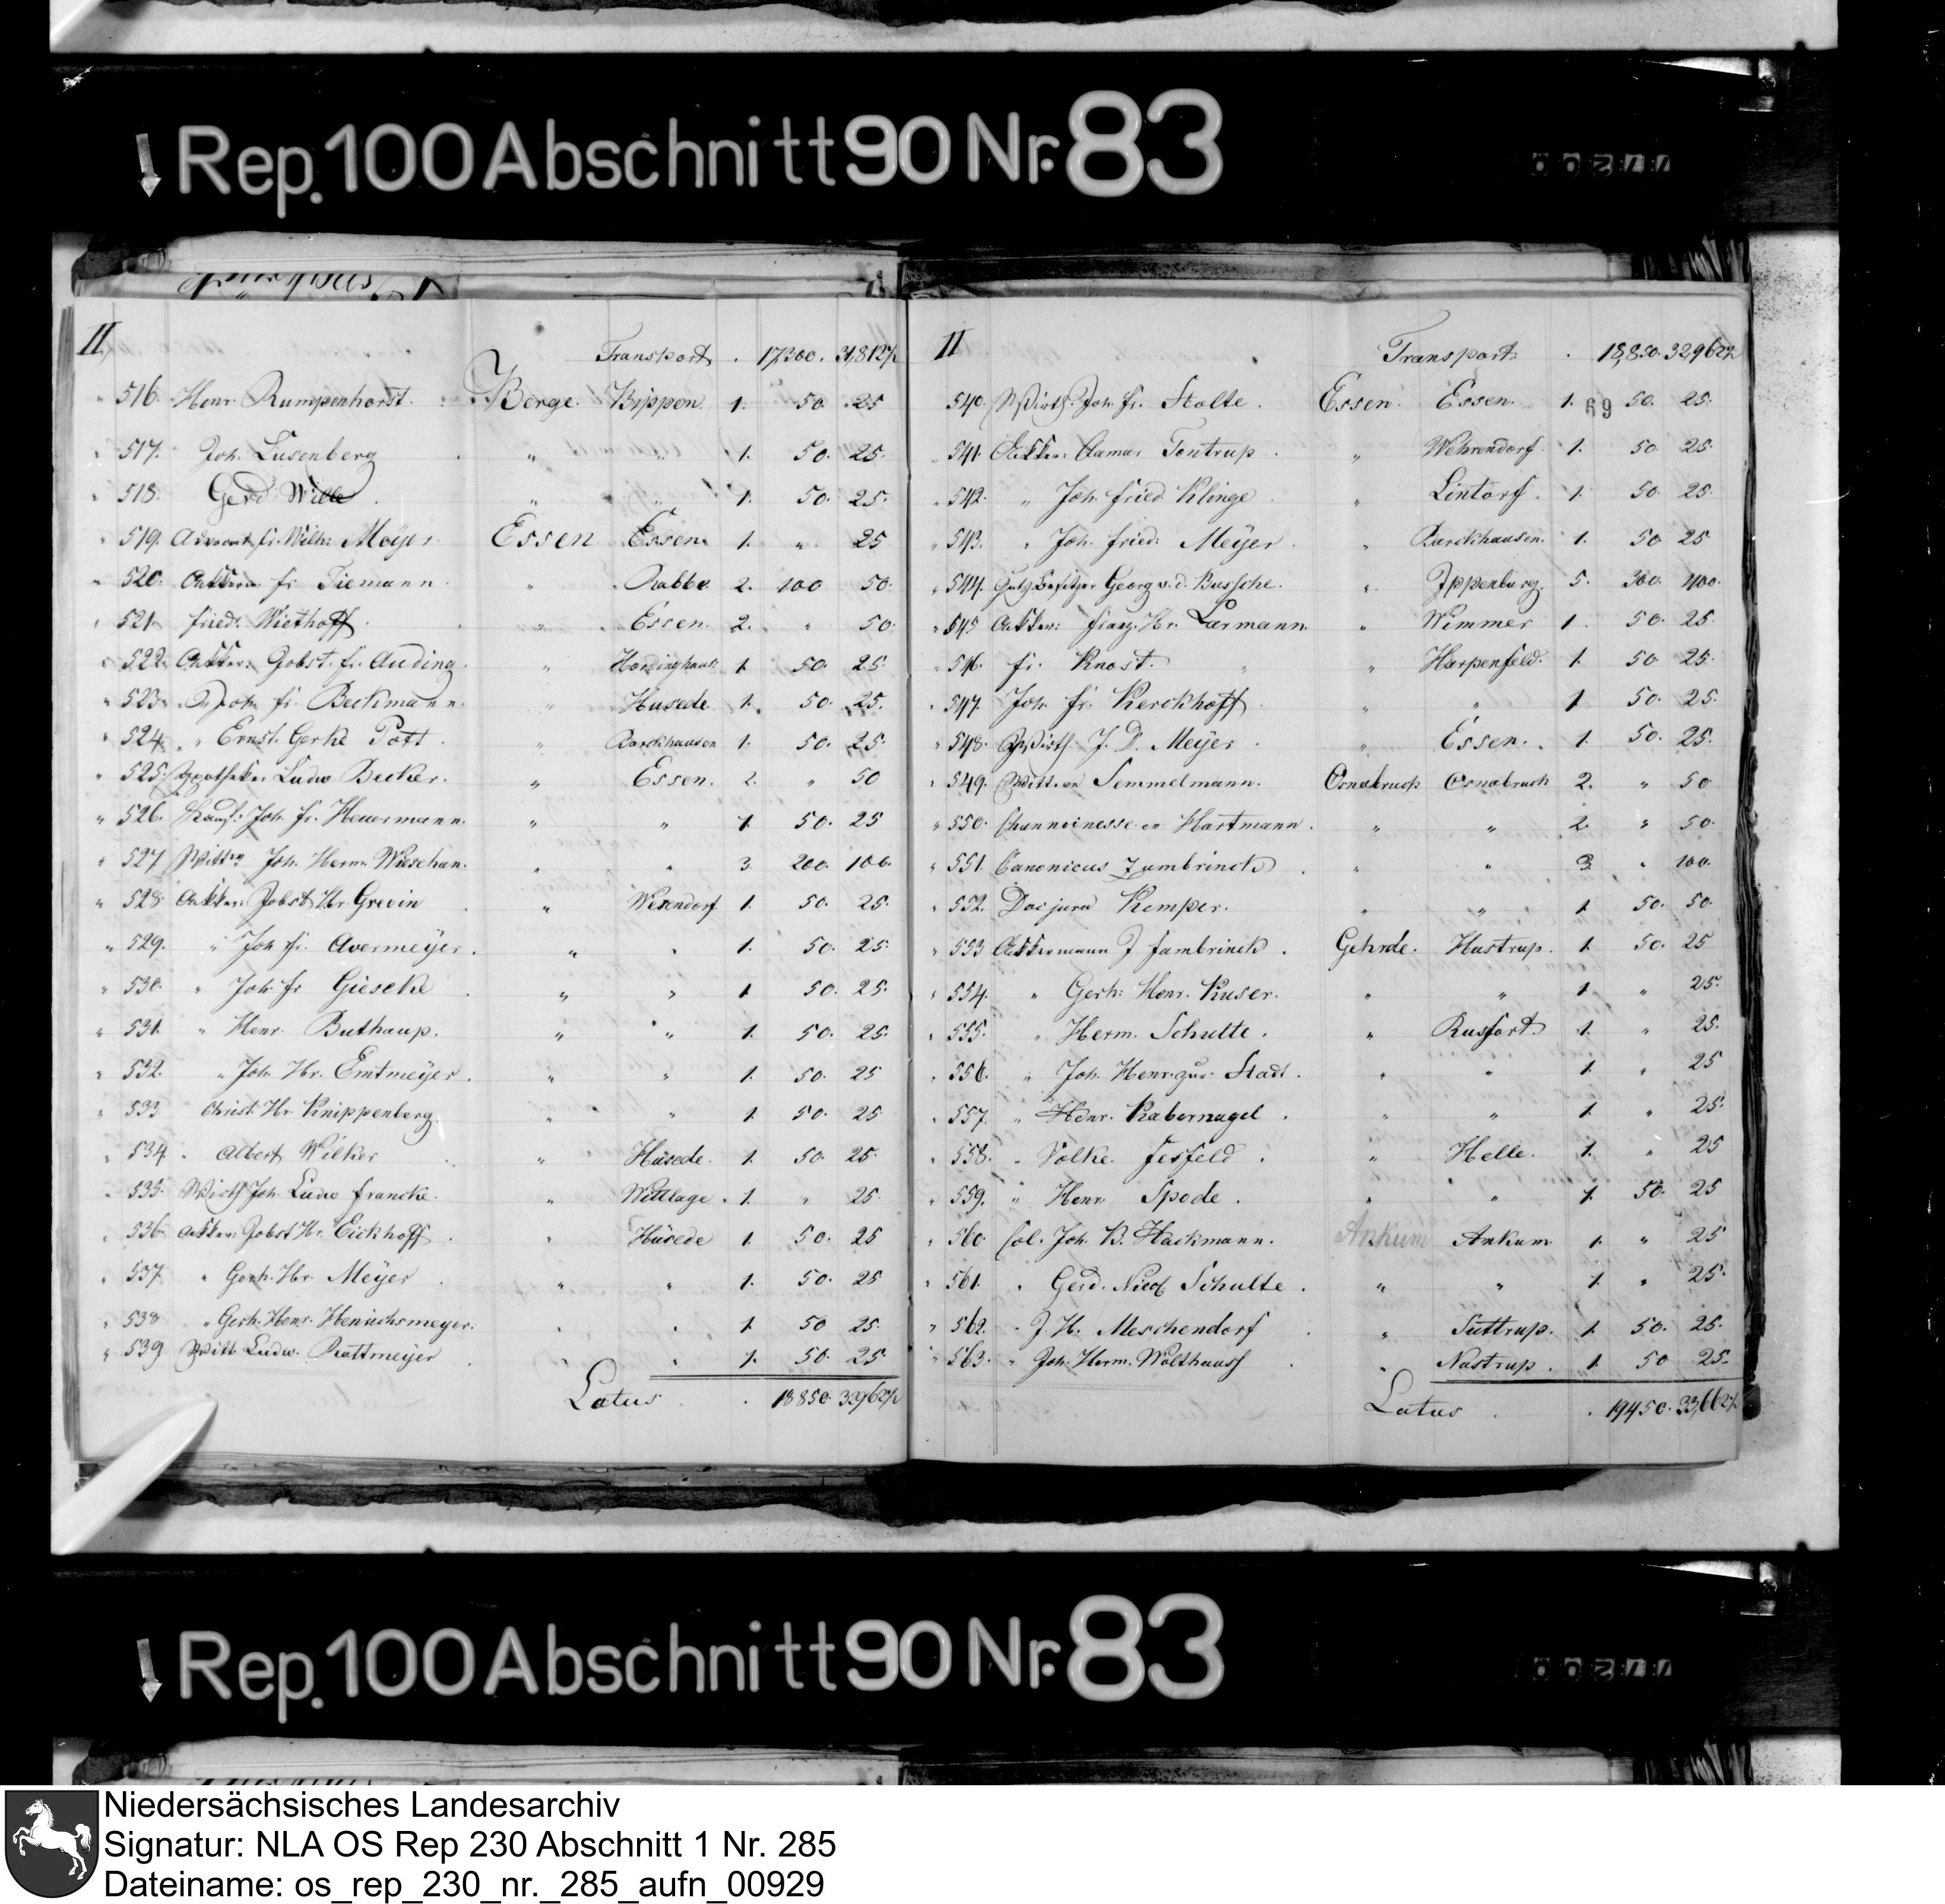 Rep. 100 Abschnitt 90 Nr. 83
II.
Transport . 17,300. 31,812½
516. Henr. Rumpenhorst. Berge. Bippen. 1. 50. 25
517. Joh. Lusenberg " " 1. 50. 25.
518. Gerd Wille " " 1. 50. 25.
519. Advocat fr. Wilh: Meÿer Essen Essen 1. " 25
520. Akkerm fr. Tiemann " Rabbe 2. 100 50.
521. fried. Wiethoff " Essen. 2. " 50
522. Akker: Jobst. fr. Auding. " Hördinghaus: 1. 50. 25.
523. " Joh. fr. Beckmann. " Husede 1. 50. 25.
524. " Ernst. Gerke Pott. " Barckhausen 1. 50. 25.
525. Apotheker Ludw Becker. " Essen. 2. " 50
526. Kauf: Joh. fr. Heuermann. " " 1. 50. 25
527 Wittwe Joh. Herm. Wiesehan. " " 3. 200. 100.
528. Akker: Jobst Hr. Grevin " Werendorf 1. 50. 25.
529. " Joh fr. Avermeÿer. " " 1. 50. 25.
530. " Joh. fr Gieseke " " 1 50. 25.
531. " Henr. Buthaup. " " 1. 50. 25.
532. " Joh. Hr. Emtmeÿer. " " 1. 50. 25
533 Christ. Hr. Knippenberg. " " 1. 50. 25
534. " Albert Wilker " Hüsede. 1. 50. 25.
535. Wirth Joh. Ludw francke. " Wittlage . 1. " 25.
536. Akker: Jobst Hr. Eickhoff " Hüsede 1. 50. 25
537. " Gerh. Hr. Meÿer " " 1. 50. 25
538 " Gerh. Henr. Henrichsmeyer. " " 1. 50 25.
539 Witt Ludw. Rottmeÿer " " 1. 50. 25
Latus . 18850. 32962½
II
Transport: . 18,850. 32962½
69
540. Wirth Joh. fr. Stolte. Essen. Essen. 1. 50. 25.
541. Akker: Clamor Tontrup. " Wehrendorf. 1. 50. 25.
542. " Joh. fried. Klinge " Lintorf. 1. 50. 25.
543. " Joh. fried: Meÿer. " Barckhausen. 1. 50 25
544. Gutsbesitzer Georg v. d. Bussche. " Ippenburg. 5. 300. 400.
545 Akker: franz. Hr. Larmann. " Wimmer 1. 50. 25.
546. fr. Knost. " " Harpenfeld. 1. 50. 25.
547. Joh. fr. Kerckhoff. " " 1 50. 25.
548. Wirth. J. D. Meÿer " Essen. 1. 50. 25.
549. Wittwe Semmelmann. Osnabruck Osnabruck 2. " 50
550. Hartmann. " " 2. " 50.
551. Canonicus Zumbrinck " " 3. " 100.
552. Doc jura Kemper. " " 1. 50. 50.
553 Akkermann J fambrinck. Gehrde. Hastrup. 1. 50. 25
554. " Gerh: Henr. Kuser. " " 1 " 25.
555. " Herm. Schulte. " Rusfort 1. " 25.
556. " Joh. Henr. zur Stadt. " " 1. " 25
557. " Henr. Kabernagel. " " 1. " 25.
558. " Volke. Jesfeld. " Helle. 1. " 25
559. " Henr. Spode. " " 1. 50. 25
560. Col. Joh. B. Hackmann. Ankum Ankum 1. " 25
561. " Gerd. Nicol Schulte. " " 1. " 25.
562. " J. H. Meschendorf " Suttrup. 1. 50. 25.
563. " Joh. Herm. Wolthaus " Nastrup. 1. 50 25.
Latus . 19450. 33,662½
Rep. 100 Abschnitt 90 Nr. 83
Niedersächsisches Landesarchiv
Signatur: NLA OS Rep 230 Abschnitt 1 Nr. 285
Dateiname: os_rep_230_nr._285_aufn_00929